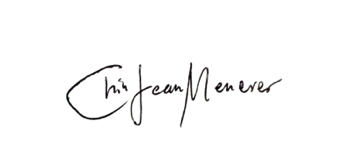 Chin Jean Menerer